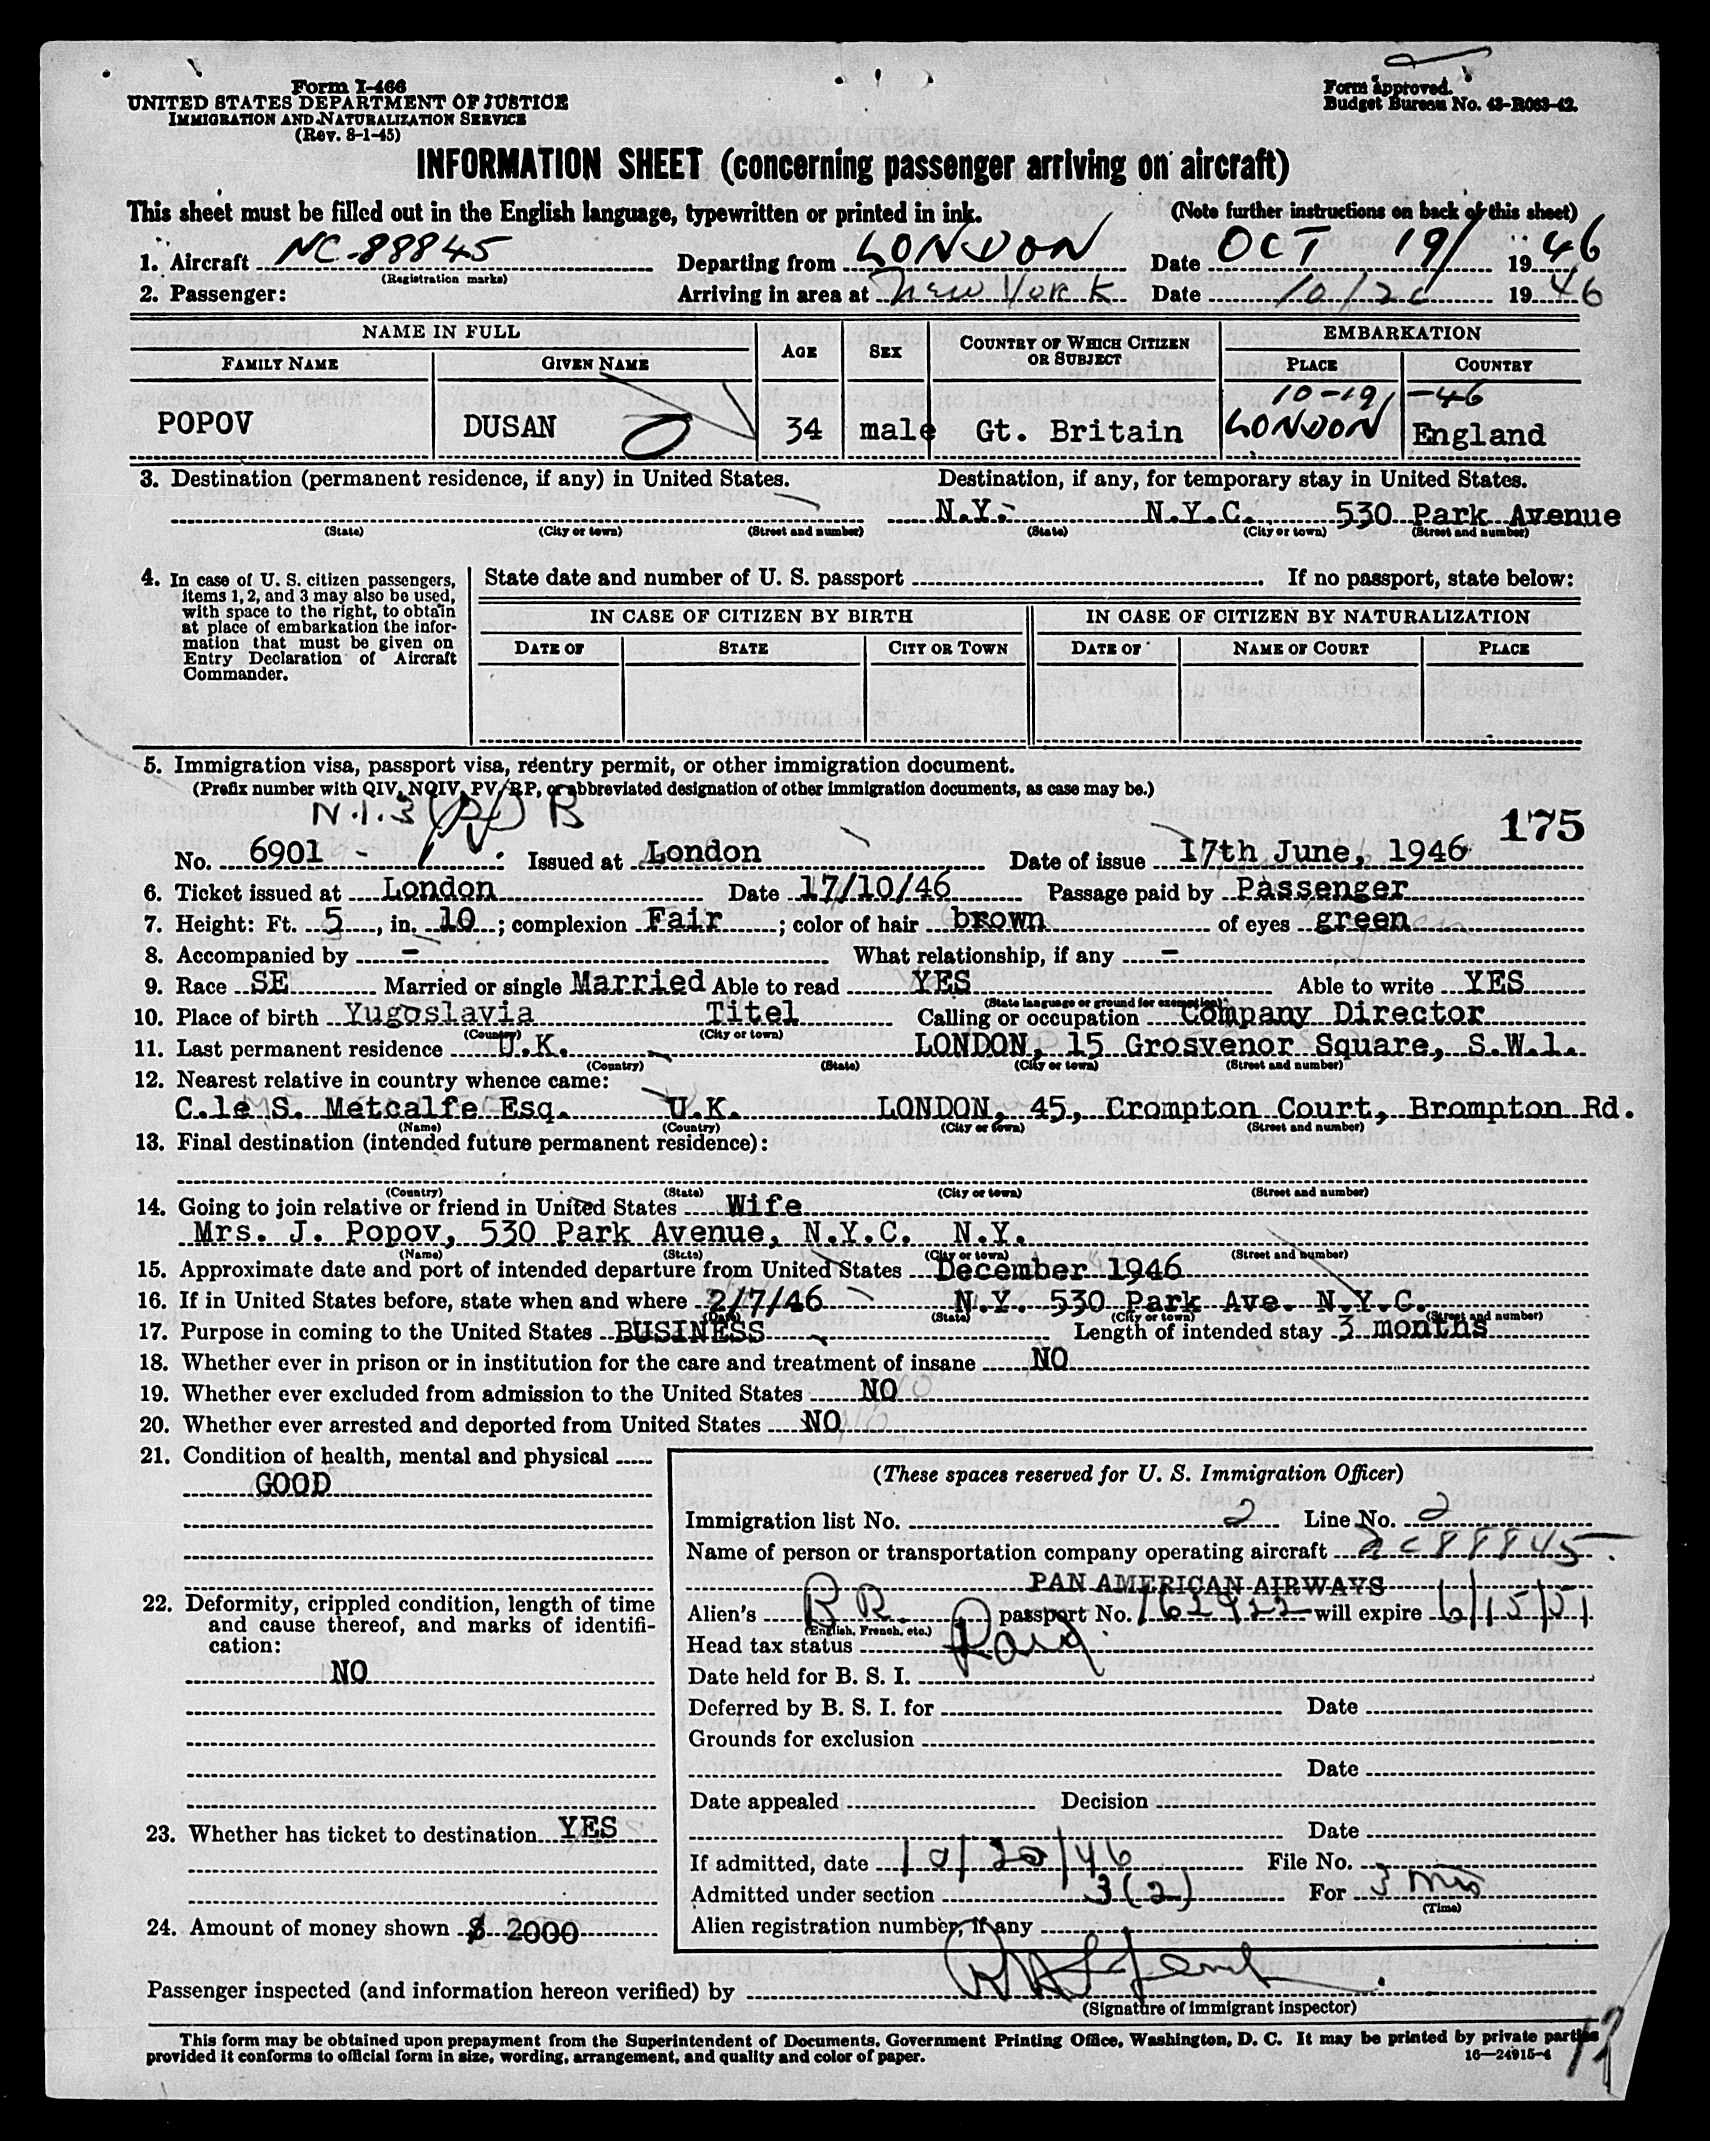 Form I-466
UNITED STATES DEPARTMENT OF JUSTICE
IMMIGRATION AND NATURALIZATION SERVICE
(Rev. 8-1-45)
Form approved.
Budget Bureau No. 43-R063-42.
INFORMATION SHEET (concerning passenger arriving on aircraft)
This sheet must be filled out in the English language, typewritten or printed in ink. (Note further instructions on back of this sheet)
1. Aircraft NC-88845 Departing from LONDON Date OCT 19/ 1946
(Registration marks)
2. Passenger: Arriving in area at New York Date 10/20 1946
NAME IN FULL AGE SEX COUNTRY OF WHICH CITIZEN OR SUBJECT EMBARKATION
FAMILY NAME GIVEN NAME PLACE COUNTRY
10-19-46
POPOV DUSAN 34 male Gt. Britain LONDON England
3. Destination (permanent residence, if any) in United States. Destination, if any, for temporary stay in United States.
N.Y. N.Y.C. 530 Park Avenue
(State) (City or town) (Street and number) (State) (City or town) (Street and number)
4. In case of U. S. citizen passengers, items 1, 2, and 3 may also be used, with space to the right, to obtain at place of embarkation the information that must be given on Entry Declaration of Aircraft Commander.
State date and number of U. S. passport If no passport, state below:
IN CASE OF CITIZEN BY BIRTH IN CASE OF CITIZEN BY NATURALIZATION
DATE OF STATE CITY OR TOWN DATE OF NAME OF COURT PLACE
5. Immigration visa, passport visa, reentry permit, or other immigration document.
(Prefix number with QIV, NQIV, PV, RP, or abbreviated designation of other immigration documents, as case may be.)
N.I. 3 B
175
No. 6901 Issued at London Date of issue 17th June, 1946
6. Ticket issued at London Date 17/10/46 Passage paid by Passenger
7. Height: Ft. 5, in. 10; complexion Fair; color of hair brown of eyes green
8. Accompanied by - What relationship, if any -
9. Race SE Married or single Married Able to read YES Able to write YES
(State language or ground for exemption)
10. Place of birth Yugoslavia Titel Calling or occupation Company Director
(Country) (City or town)
11. Last permanent residence U.K. LONDON, 15 Grosvenor Square, S.W.1.
(Country) (State) (City or town) (Street and number)
12. Nearest relative in country whence came:
C.le S. Metcalfe Esq. U.K. LONDON, 45, Crompton Court, Brompton Rd.
(Name) (Country) (City or town) (Street and number)
13. Final destination (intended future permanent residence):
(Country) (State) (City or town) (Street and number)
14. Going to join relative or friend in United States Wife
Mrs. J. Popov, 530 Park Avenue, N.Y.C. N.Y.
(Name) (State) (City or town) (Street and number)
15. Approximate date and port of intended departure from United States December 1946
16. If in United States before, state when and where 2/7/46 N.Y. 530 Park Ave. N.Y.C.
(Date) (State) (City or town) (Street and number)
17. Purpose in coming to the United States BUSINESS Length of intended stay 3 months
18. Whether ever in prison or in institution for the care and treatment of insane NO
19. Whether ever excluded from admission to the United States NO
20. Whether ever arrested and deported from United States NO
21. Condition of health, mental and physical
GOOD
22. Deformity, crippled condition, length of time and cause thereof, and marks of identification:
NO
23. Whether has ticket to destination YES
24. Amount of money shown $ 2000
(These spaces reserved for U. S. Immigration Officer)
Immigration list No. 2 Line No. 2
Name of person or transportation company operating aircraft NC88845
PAN AMERICAN AIRWAYS
Alien's BR. passport No. will expire 6/15/51
(English, French, etc.)
Head tax status Paid
Date held for B. S. I.
Deferred by B. S. I. for Date
Grounds for exclusion
Date
Date appealed Decision
Date
If admitted, date 10/20/46 File No.
Admitted under section 3(2) For 3 mos
(Time)
Alien registration number, if any
Passenger inspected (and information hereon verified) by
(Signature of immigrant inspector)
This form may be obtained upon prepayment from the Superintendent of Documents, Government Printing Office, Washington, D. C. It may be printed by private parties
provided it conforms to official form in size, wording, arrangement, and quality and color of paper. 16—24915-4